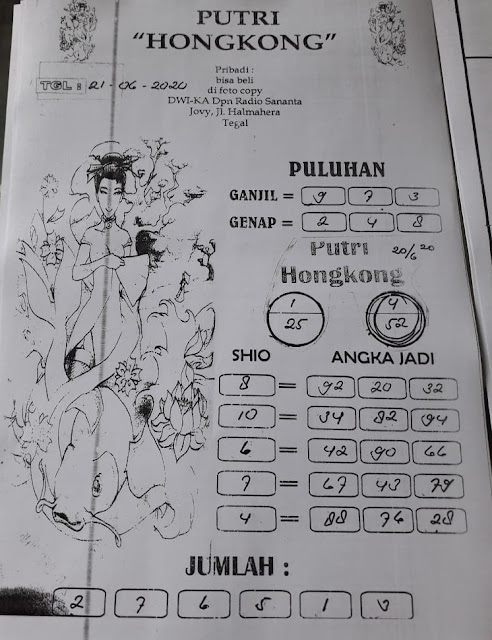 PUTRI
“HONGKONG”
Pribadi :
bisa beli
di foto copy
DWI-KA Dpn Radio Sananta
Jovy, Jl. Halmahera
Tegal
TGL : 21 - 06 - 2020
PULUHAN
GANJIL = 9 7 3
GENAP = 2 4 8
Putri 20/6 20
Hongkong
1 4
25 52
SHIO ANGKA JADI
8 = 92 20 32
10 = 34 82 94
6 = 42 90 66
7 = 67 43 79
4 = 88 76 28
JUMLAH :
2 7 6 5 1